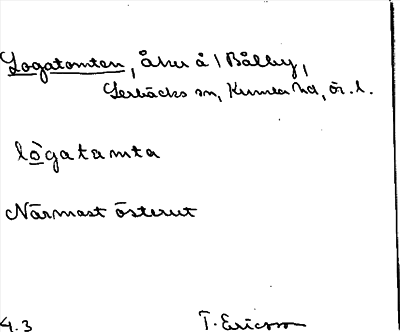 Logatomten, åker å 1 Bålby,
Lerbäcks sn, Kumla hd, Ör. l.
lògatamta
Närmast österut
4.3 T. Ericsson